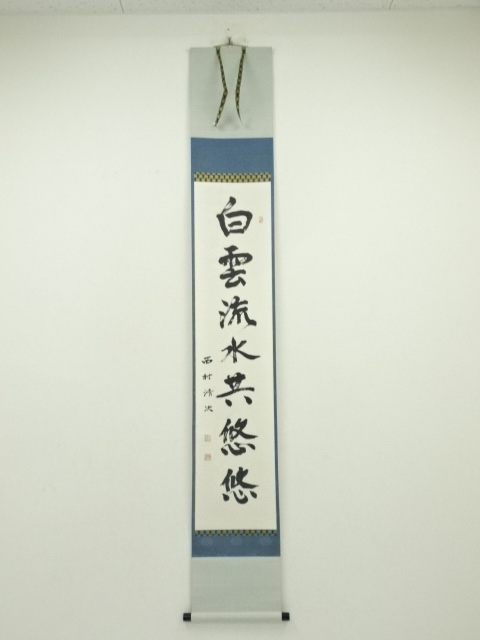 白雲流水共悠悠
西村清次